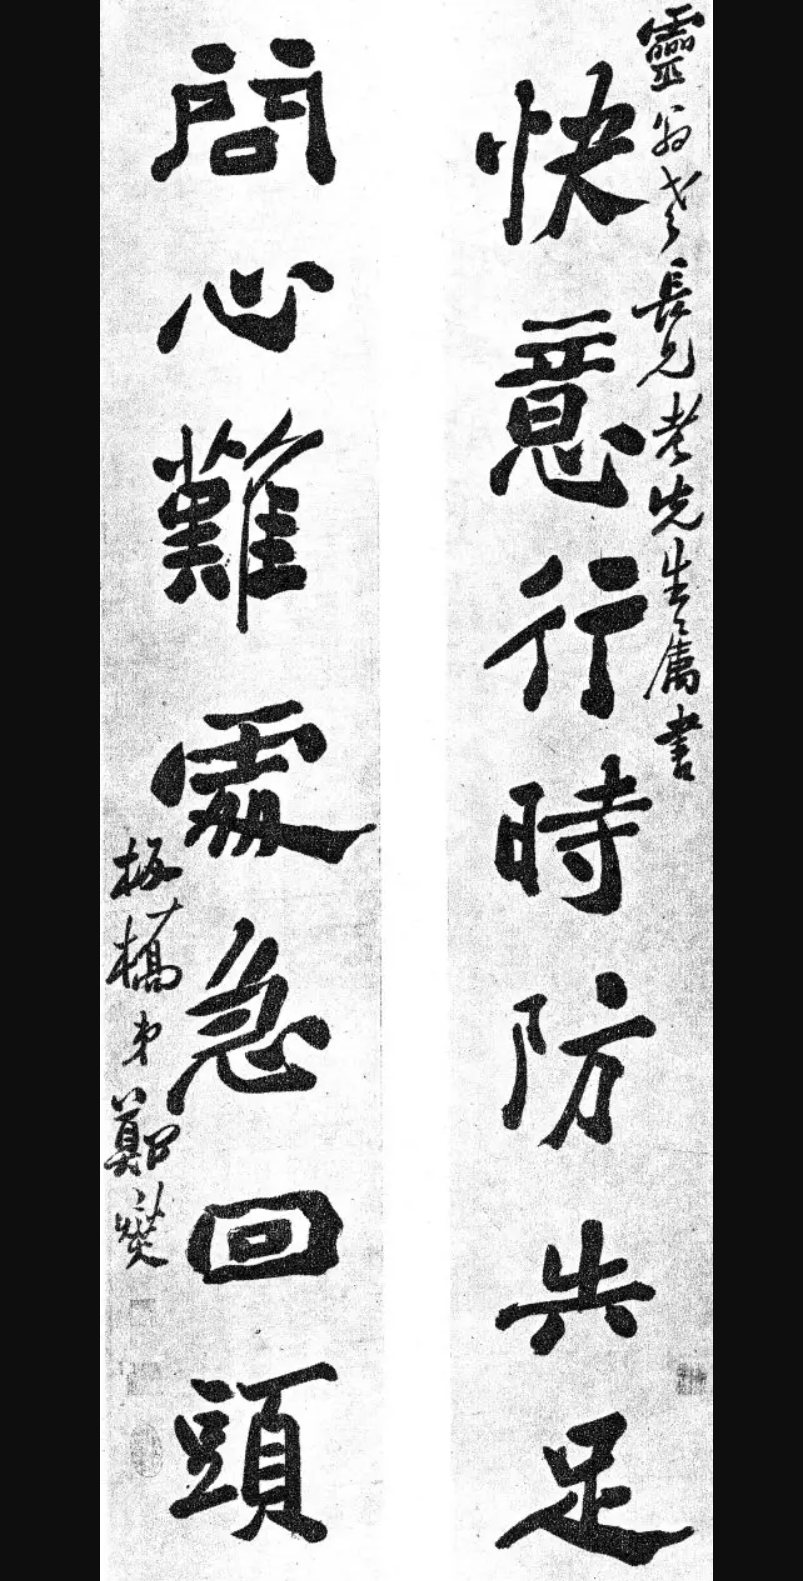 靈翁老長兄老先生屬書
快意行時防失足
問心難處急回頭
板橋弟鄭燮